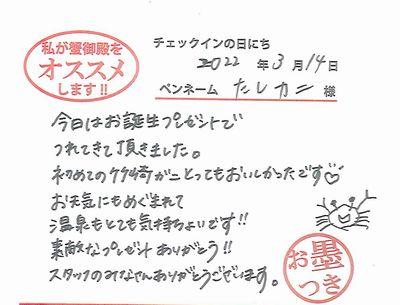 私が蟹御殿を
オススメ
します!!
チェックインの日にち
2022 年 3 月 14 日
ペンネーム たしカニ 様
今日はお誕生プレゼントで
つれてきて頂きました。
初めての竹崎ガニとってもおいしかったです
お天気にもめぐまれて
温泉もとても気持ちよいです!!
素敵なプレゼント ありがとう!!
スタッフのみなさんありがとうございます。
お墨
つき